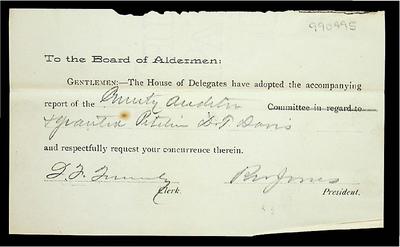 990495
To the Board of Aldermen:
GENTLEMEN:—The House of Delegates have adopted the accompanying
report of the County Auditor Committee in regard to
& granted Petition D. T. Davis
and respectfully request your concurrence therein.
Clerk. President.